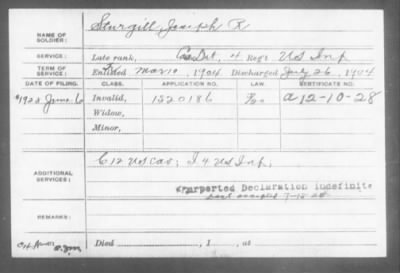 NAME OF SOLDIER: Sturgill, Joseph K
SERVICE: Late rank, Co. Det, 4 Reg't US Inf
TERM OF SERVICE: Enlisted Mar 10, 1904 Discharged July 26, 1904
DATE OF FILING. CLASS. APPLICATION NO. LAW. CERTIFICATE NO.
1922 June 6 Invalid, 1520186 A 12-10-28
Widow,
Minor,
ADDITIONAL SERVICES: C 12 US Cav; I 4 US Inf,
Declaration indefinite
REMARKS:
Died , 1 , at